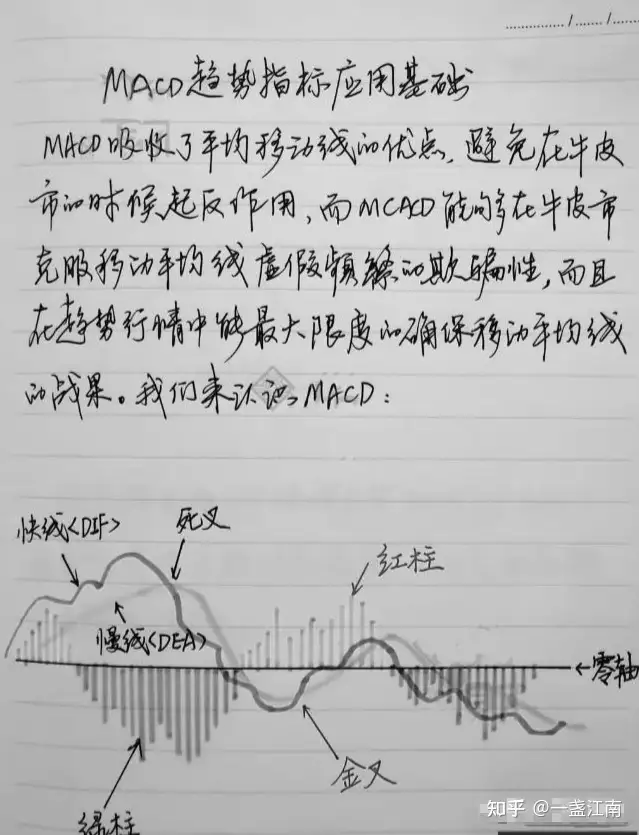 MACD趋势指标应用基础
MACD吸收了平均移动线的优点，避免在牛皮
市的时候起反作用，而MCACD能够在牛皮市
克服移动平均线虚假频繁的欺骗性，而且
在趋势行情中能最大限度的确保移动平均线
的战果。我们来认识MACD：
快线<DIF>
死叉
红柱
慢线<DEA>
零轴
金叉
绿柱
知乎 @一盏江南